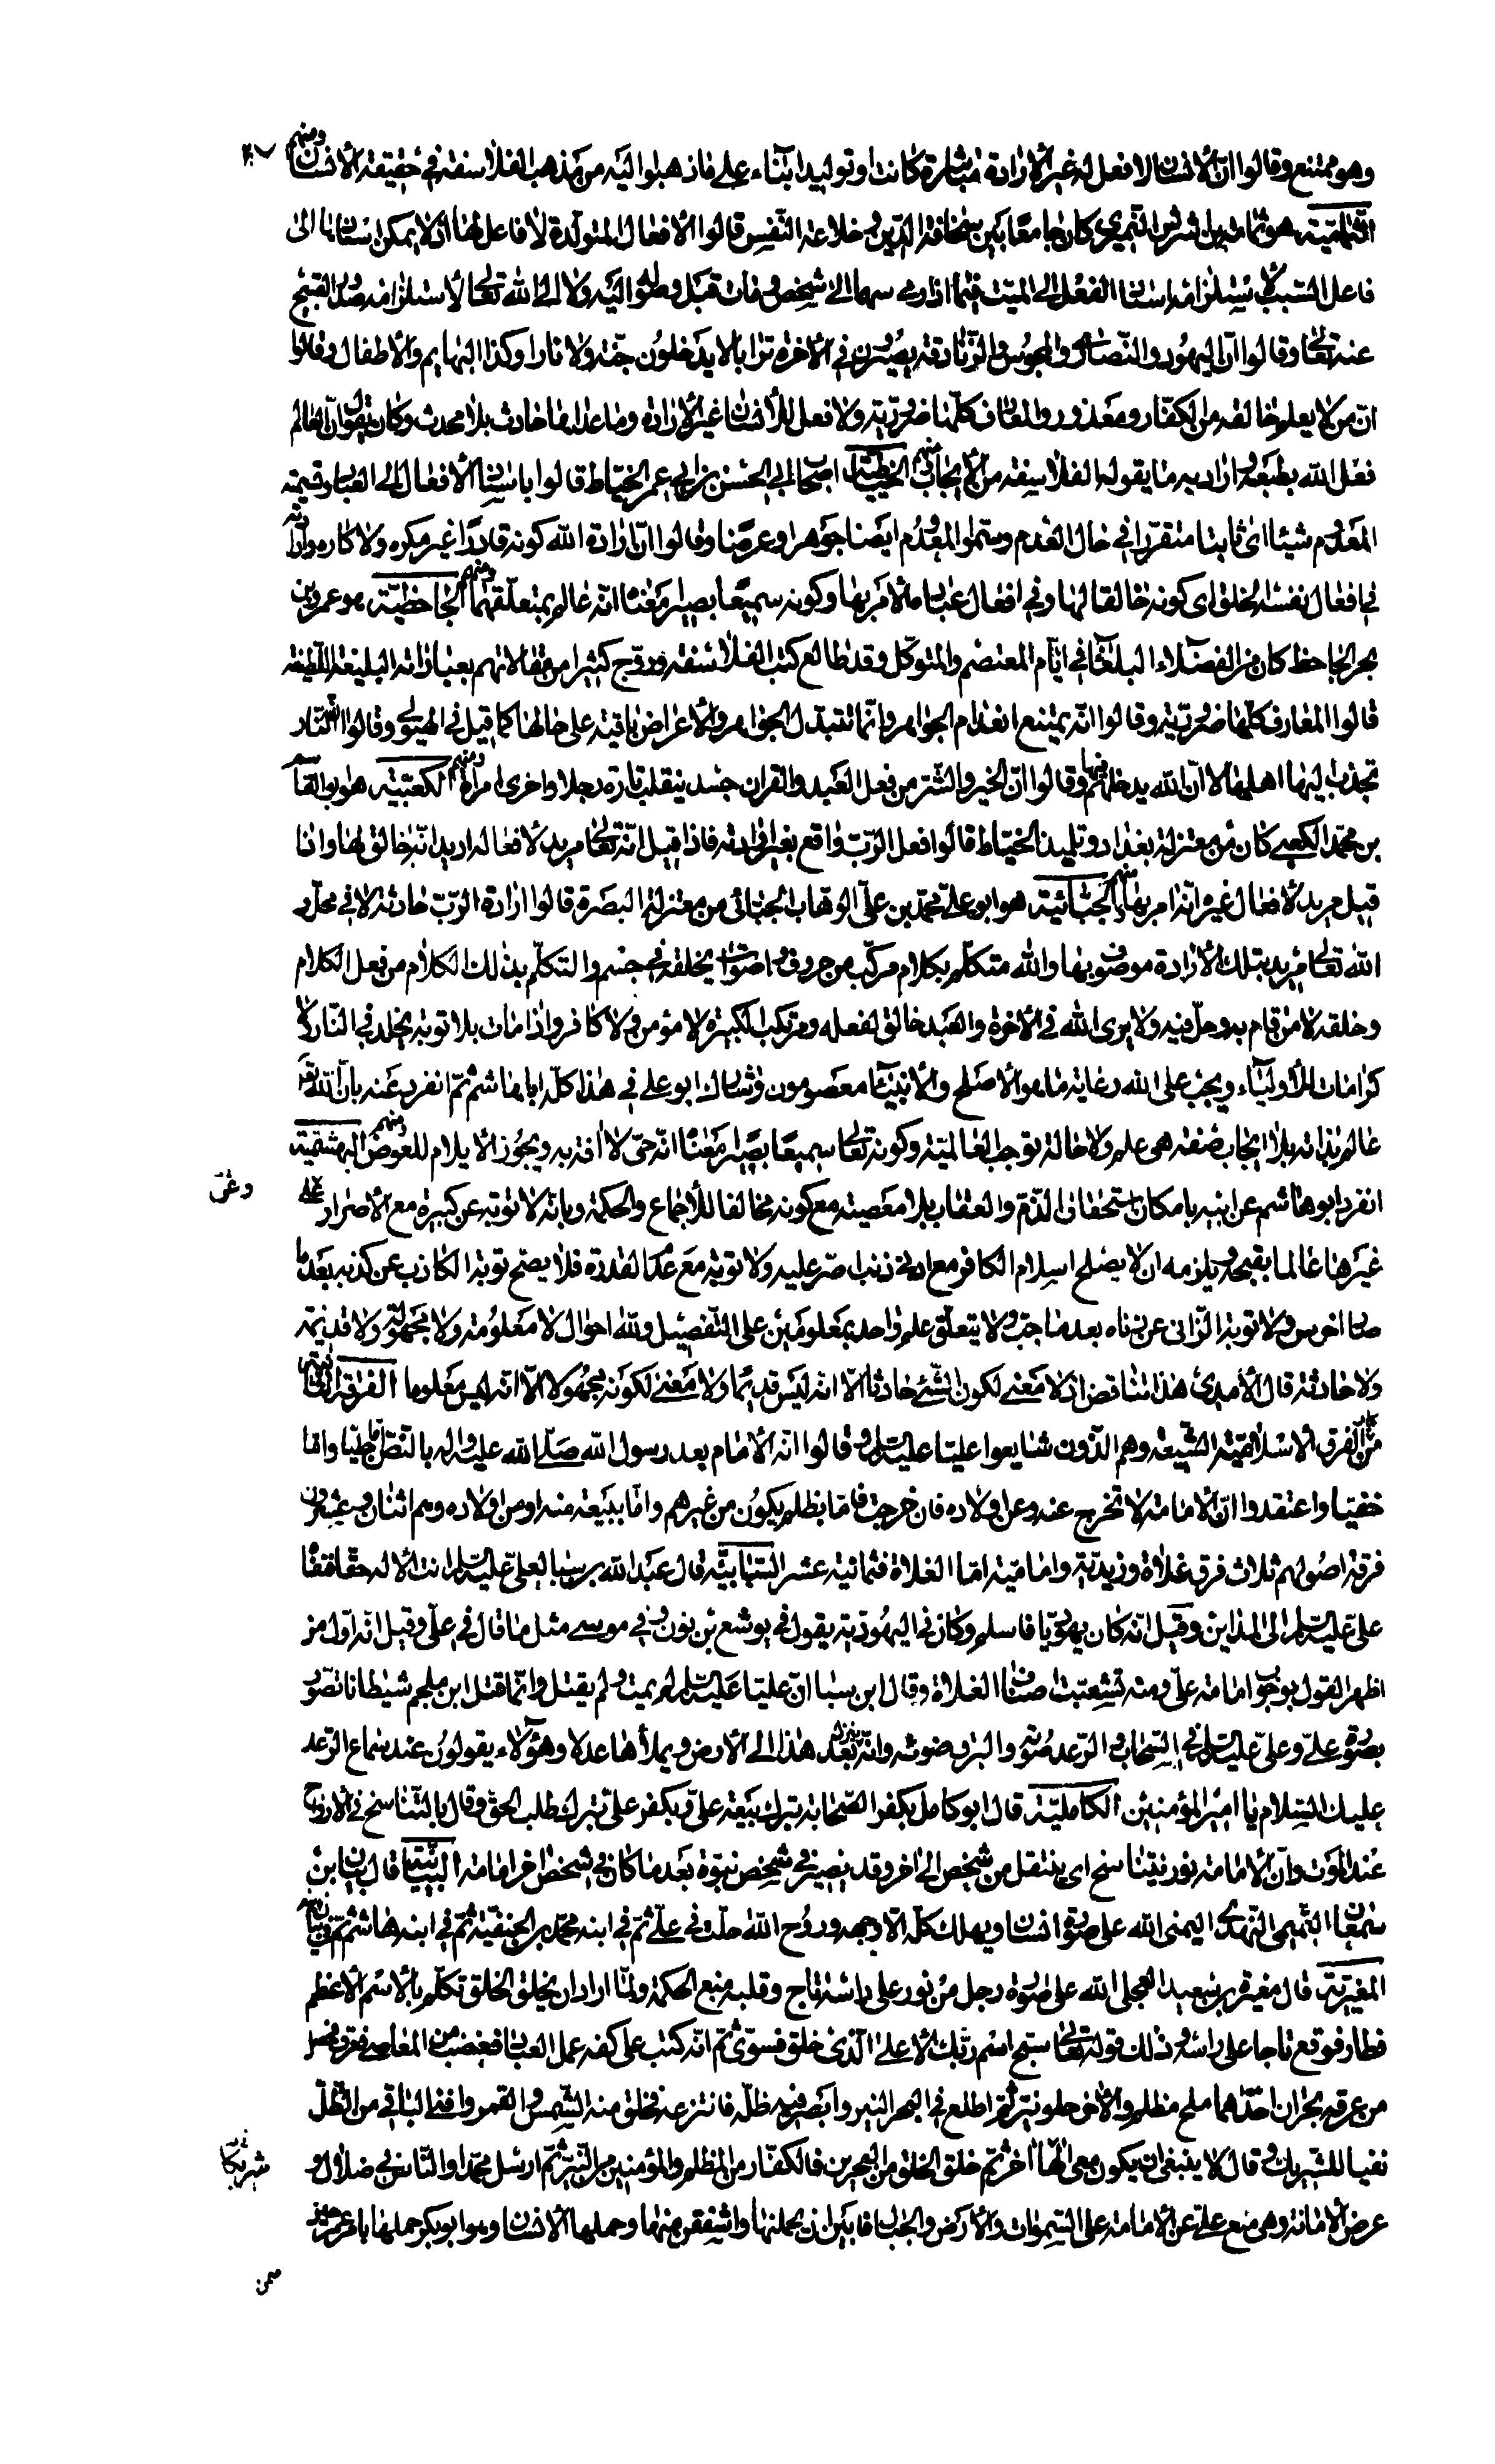 ٢٠٧
وهو ممتنع وقالوا ان الأنسان لا فعل له غير الأرادة مباشرة كانت او توليدا بناء على ما ذهبوا اليه من مذهب الفلاسفة في حقيقة الأنسان ومنهم
الثماميّة هو ثمامة بن اشرس النميري كان جامعًا بين سخافة الدين وخلاعة النفس قالوا الأفعال المتولدة لا فاعل لها اذ لا يمكن اسنادها الى
فاعل السبب لاستلزامه اسناد الفعل الى الميت فيما اذا رمى سهما الى شخص ومات قبل وصوله اليه ولا الى الله تعالى لاستلزامه صدور القبيح
عنه تعالى وقالوا ان اليهود والنصارى والمجوس والزنادقة يصيرون في الأخرة ترابا لا يدخلون جنة ولا نارا وكذا البهايم والأطفال وقالوا
ان من لا يعلم خالقه من الكفار ومعذور والمعارف كلّها ضروريّة ولا فعل للأنسان غير الأرادة وما عداها حادث بلا محدث وكان يقول ان العالم
فعل الله بطبعه اراد به ما يقوله الفلاسفة من الأيجاب ومنهم الخيّاطيّة اصحاب ابي الحسن بن ابي عمر الخيّاط قالوا باسناد الأفعال الى العباد وتسمية
المعدوم شيئا اى ثابتا متقررا في حال العدم وسمّوا المعدوم ايضا جوهرا وعرضا وقالوا ان ارادة الله كونه قادرًا غير مكره ولا كاره وارادته
في افعال نفسه الخلق اى كونه خالقا لها وفي افعال عباده الأمر بها وكونه سميعًا بصيرا معناه انّه عالم بمتعلقهما ومنهم الجاحظيّة هو عمرو بن
بحر الجاحظ كان من الفضلاء البلغاء في ايّام المعتصم والمتوكّل وقد طالع كتب الفلاسفة وروّج كثيرا من مقالاتهم بعباراته البليغة اللّطيفة
قالوا المعارف كلّها ضروريّة وقالوا انّه يمتنع انعدام الجواهر وانّما تتبدّل الجواهر والأعراض باقية على حالها كما قيل في الهيولى وقالوا النّار
تجذب اليها اهلها لا انّ الله يدخلهم فيها وقالوا انّ الخير والشّر من فعل العبد والقران جسد ينقلب تارة رجلا واخرى امراة ومنهم الكعبيّة هو ابو القاسم
بن محمّد الكعبي كان من معتزلة بغداد وتلميذ الخيّاط قالوا فعل الرّب واقع بغير ارادته فاذا قيل انّه تعالى مريد لأفعاله اريد انّه خالق لها واذا
قيل مريد لأفعال غيره انّه امر بها ومنهم الجبّائية هو ابو علي محمّد بن علي الوهاب الجبّائي من معتزلة البصرة قالوا ارادة الرّب حادثة لا في محلّ و
الله تعالى مريد بتلك الأرادة موصوف بها والله متكلم بكلام مركّب من حروف واصوات يخلقه في جسم والمتكلّم بذلك الكلام من فعل الكلام
وخلقه لا من قام به وحلّ فيه ولا يرى الله في الأخرة والعبد خالق لفعله ومرتكب الكبيرة لا مؤمن ولا كافر واذا مات بلا توبة يخلد في النار ولا
كرامات للأولياء ويجب على الله رعاية ما هو الأصلح والأنبياء معصومون وشارك ابو علي في هذا كلّه ابا هاشم ثمّ انفرد عنه بانّ الله تعالى
عالم بذاته بلا ايجاب صفة هي علم ولا حالة توجب العالميّة وكونه تعالى سميعًا بصيرا معناه انّه حيّ لا افة به ويجوز الأيلام للعوض ومنهم البهشميّة
انفرد ابو هاشم عن ابيه بامكان استحقاق الذّم والعقاب بلا معصية مع كونه مخالفا للأجماع والحكمة وبانّه لا توبة عن كبيرة مع الأصرار على
غيرها عالما بقبحه ويلزمه ان لا يصلح اسلام الكافر مع ادنى ذنب اصرّ عليه ولا توبة مع عدم القدرة فلا يصحّ توبة الكاذب عن كذبه بعد ما
صار اخرس ولا توبة الزّاني عن زناه بعد ما جبّ ولا يتعلّق علم واحد بمعلومين على التفصيل ولله احوال لا معلومة ولا مجهولة ولا قديمة
ولا حادثة قال الأمدي هذا تناقض اذ لا معنى لكون الشّئ حادثا الّا انّه ليس قديمًا ولا معنى لكونه مجهولا الّا انّه ليس معلوما الفرقة الثانية
من كبار الفرق الاسلاميّة الشيعة وهم الذّين شايعوا عليّا عليه السلام وقالوا انّه الأمام بعد رسول الله صلّى الله عليه واله بالنّص امّا جليّا وامّا
خفيّا واعتقدوا انّ الأمامة لا تخرج عنه وعن اولاده فان خرجت فامّا بظلم يكون من غيرهم وامّا ببيعة منه او من اولاده وهم اثنان وعشرون
فرقة اصولهم ثلاث فرق غلاة وزيديّة واماميّة امّا الغلاة فثمانية عشر السّبابيّة قال عبد الله بن سبا لعليّ عليه السلام انت الأله حقّا فنفاه
عليّ عليه السلام الى المداين وقيل انّه كان يهوديّا فاسلم وكان في اليهوديّة يقول في يوشع بن نون وفي موسى مثل ما قال في عليّ وقيل انّه اوّل من
اظهر القول بوجوب امامة علي ومنه تشعّبت اصناف الغلاة وقال ابن سبا انّ عليّا عليه السلام لم يمت ولم يقتل وانّما قتل ابن ملجم شيطانا تصوّر
بصورة عليّ وعليّ عليه السلام في السّحاب والرّعد صوته والبرق ضوئه وانّه ينزل بعد هذا الى الأرض ويملأها عدلا وهؤلاء يقولون عند سماع الرّعد
عليك السّلام يا امير المؤمنين الكامليّة قال ابو كامل بكفر الصّحابة بترك بيعة علي وبكفر علي بترك طلب الحق وقال بالتّناسخ في الأرواح
عند الموت وان الأمامة نور يتناسخ اى ينتقل من شخص الى اخر وقد يصير في شخص نبوّة بعد ما كان في شخص اخر امامة البيانيّة قال بيان بن
سمعان التّميمي النّهدي اليمني الله على صورة انسان ويهلك كلّه الّا وجهه وروح الله حلّت في علي ثمّ في ابنه محمّد بن الحنفيّة ثمّ في ابنه هاشم ثمّ في بيان
المغيريّة قال مغيرة بن سعيد العجلي الله على صورة رجل من نور على راسه تاج وقلبه منبع الحكمة ولمّا اراد ان يخلق الخلق تكلّم بالأسم الأعظم
فطار فوقع تاجا على راسه وذلك قوله تعالى سبّح اسم ربّك الأعلى الّذي خلق فسوّى ثمّ انّه كتب على كفه عمل العباد فغضب من المعاصي فعرق فحصل
من عرقه بحران احدهما ملح مظلم والأخر حلو نيّر ثمّ اطلع في البحر النير وابصر فيه ظلّه فانتزعه فخلق منه الشّمس والقمر وافنى الباقي من الظّلّ
نفيا للشريك وقال لا ينبغي ان يكون معي الها اخر ثمّ خلق الخلق من البحرين فالكفّار من المظلم والمؤمنين من النّير ثمّ ارسل محمّدا والنّاس في ضلال و
عرض الأمانة وهي منع علي عن الأمامة على السّموات والأرض والجبال فابين ان يحملنها واشفقن منها وحملها الأنسان وهو ابو بكر حملها بامر عمر حين
ضمن